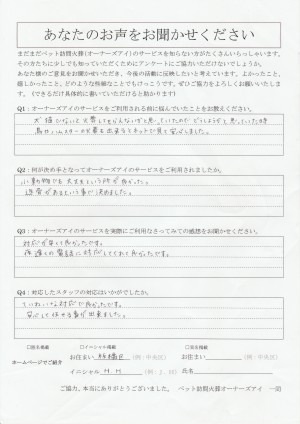 あなたのお声をお聞かせください
まだまだペット訪問火葬(オーナーズアイ)のサービスを知らない方がたくさんいらっしゃいます。
その方たちに少しでも知っていただくためにアンケートにご協力いただけないでしょうか。
あなた様のご意見をお聞かせいただき、今後の活動に反映したいと考えています。よかったこと、
嬉しかったこと、どのような些細なことでもけっこうです。ぜひご協力をよろしくお願いいたします。
(できるだけ具体的に書いていただけると助かります)
Q1:オーナーズアイのサービスをご利用される前に悩んでいたことをお教えください。
犬猫じゃないと火葬してもらえないかと思っていたのでどうしようと思っていた時
鳥やハムスターの火葬も出来るとネットで見て安心しました。
Q2:何が決め手となってオーナーズアイのサービスをご利用されましたか。
小動物でも大丈夫という所が良かった。
返骨があるという事で決めました。
Q3:オーナーズアイのサービスを実際にご利用なさってみての感想をお聞かせください。
対応が早くて良かったです。
夜遅くの電話に対応してくれて良かったです。
Q4:対応したスタッフの対応はいかがでしたか。
ていねいな対応で良かったです。
安心して任せる事が出来ました。
ホームページでご紹介
□イニシャル掲載
お住まい 板橋区 (例:中央区)
イニシャル H H
お住まい (例:中央区)
氏名
ご協力、本当にありがとうございました。 ペット訪問火葬オーナーズアイ 一同